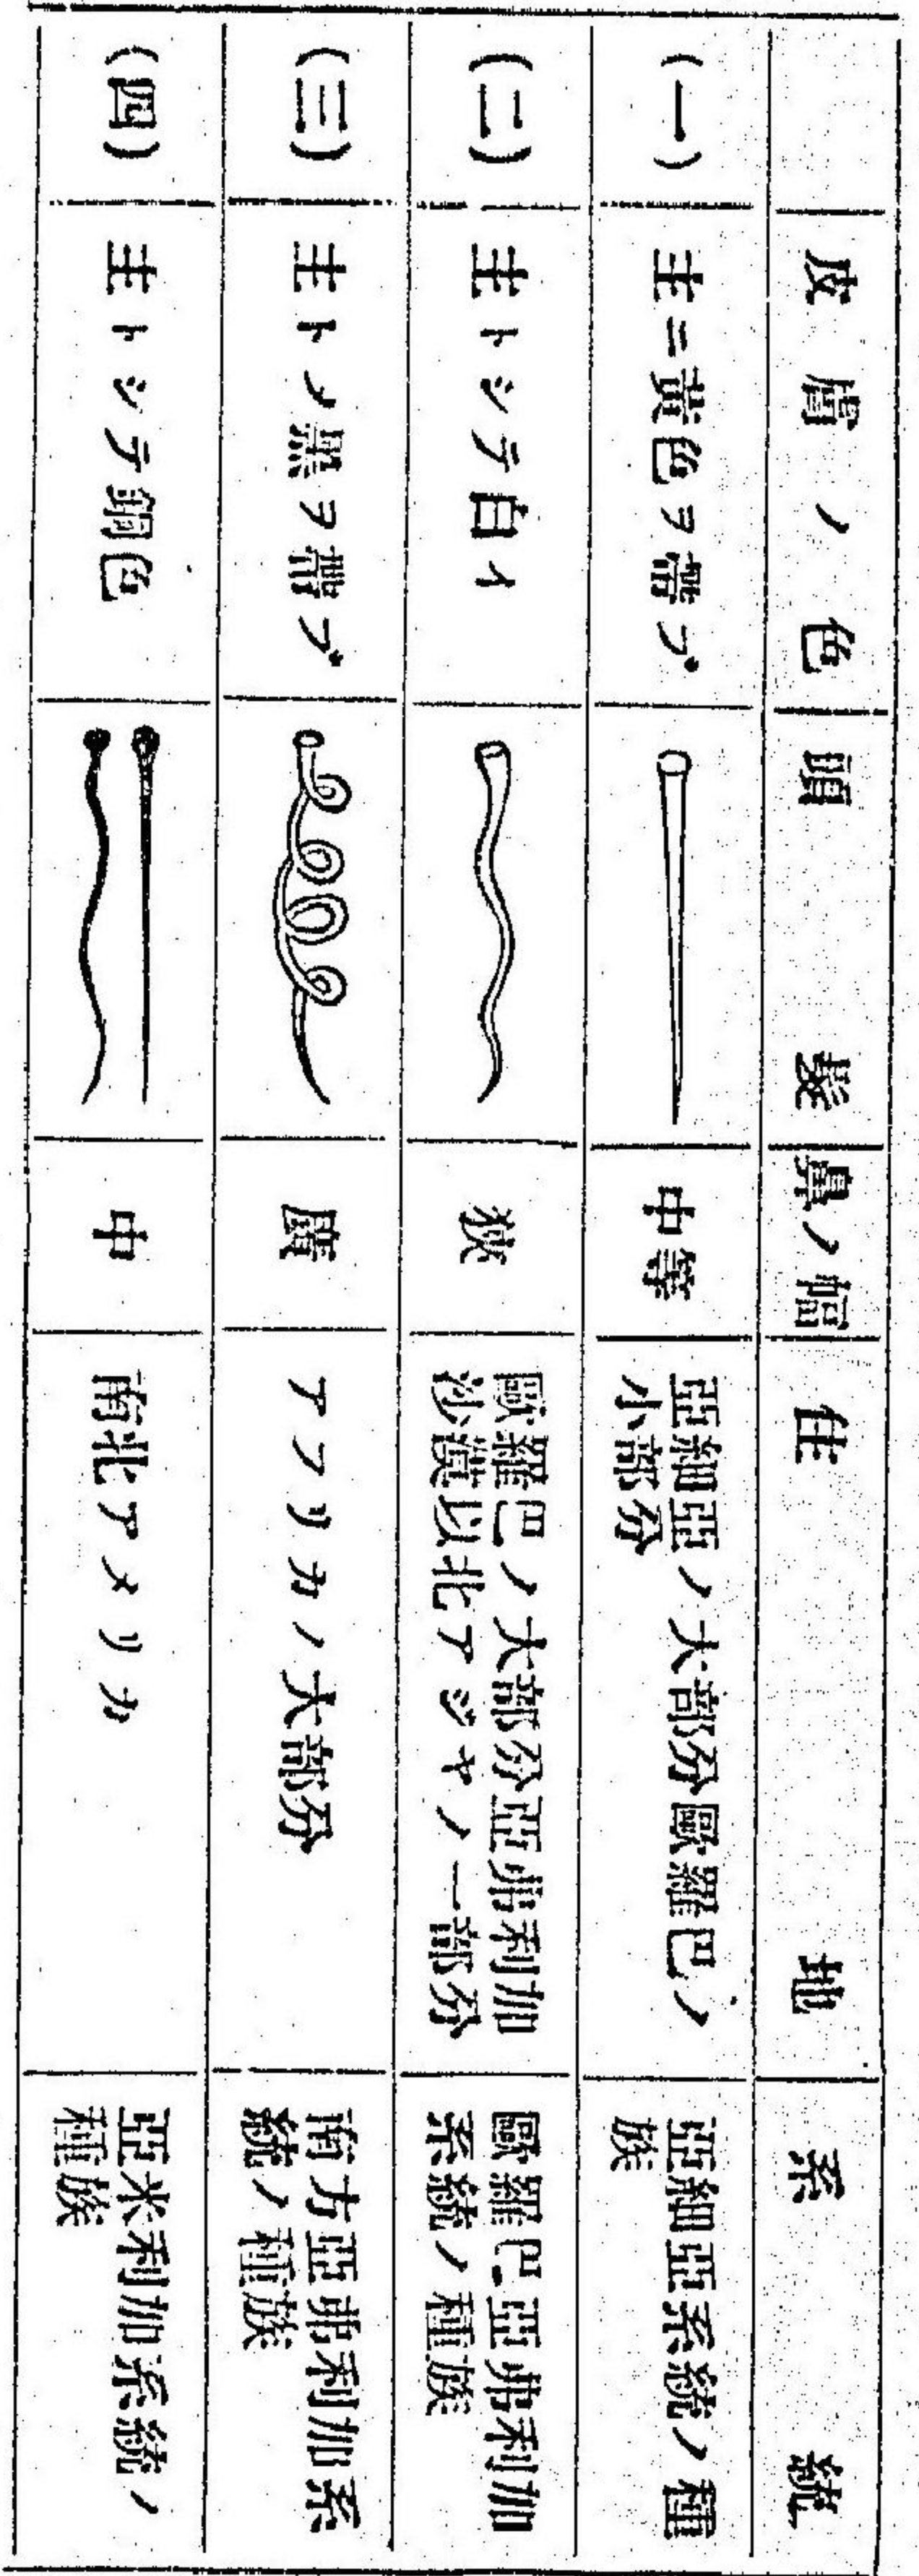 皮膚ノ色
頭髮
鼻ノ幅
住地
系統
(一)
主ニ黃色ヲ帶ブ
中等
亞細亞ノ大部分歐羅巴ノ
小部分
亞細亞系統ノ種
族
(二)
主トシテ白イ
狹
歐羅巴ノ大部分亞弗利加
沙漠以北アジヤノ一部分
歐羅巴亞弗利加
系統ノ種族
(三)
主トメ黑ヲ帶ブ
廣
アフリカノ大部分
南方亞弗利加系
統ノ種族
(四)
主トシテ銅色
中
南北アメリカ
亞米利加系統ノ
種族